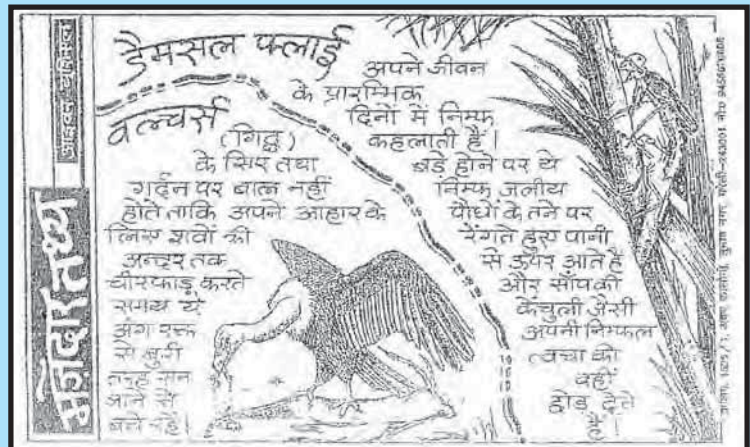 मज़ेदार तथ्य
डैमसल फ्लाई
अपने जीवन
के प्रारम्भिक
दिनों में निम्फ
कहलाती हैं।
बड़े होने पर ये
निम्फ जलीय
पौधों के तने पर
रेंगते हुए पानी
से ऊपर आते हैं
और साँप की
केंचुली जैसी
अपनी निम्फल
त्वचा को
वहीं
छोड़ देते
हैं।
वल्चर्स
(गिद्ध)
के सिर तथा
गर्दन पर बाल नहीं
होते ताकि अपने आहार के
लिए शवों की
अन्दर तक
चीरफाड़ करते
समय ये
अंग रक्त
से बुरी
तरह सन
जाने से
बचे रहें।